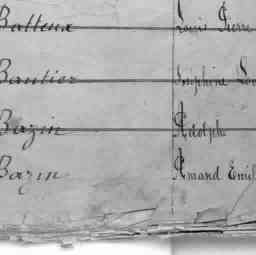 Batteux Louis Pierre
Bautier Joséphine
Bazin Adolph
Bazin Amand Emil